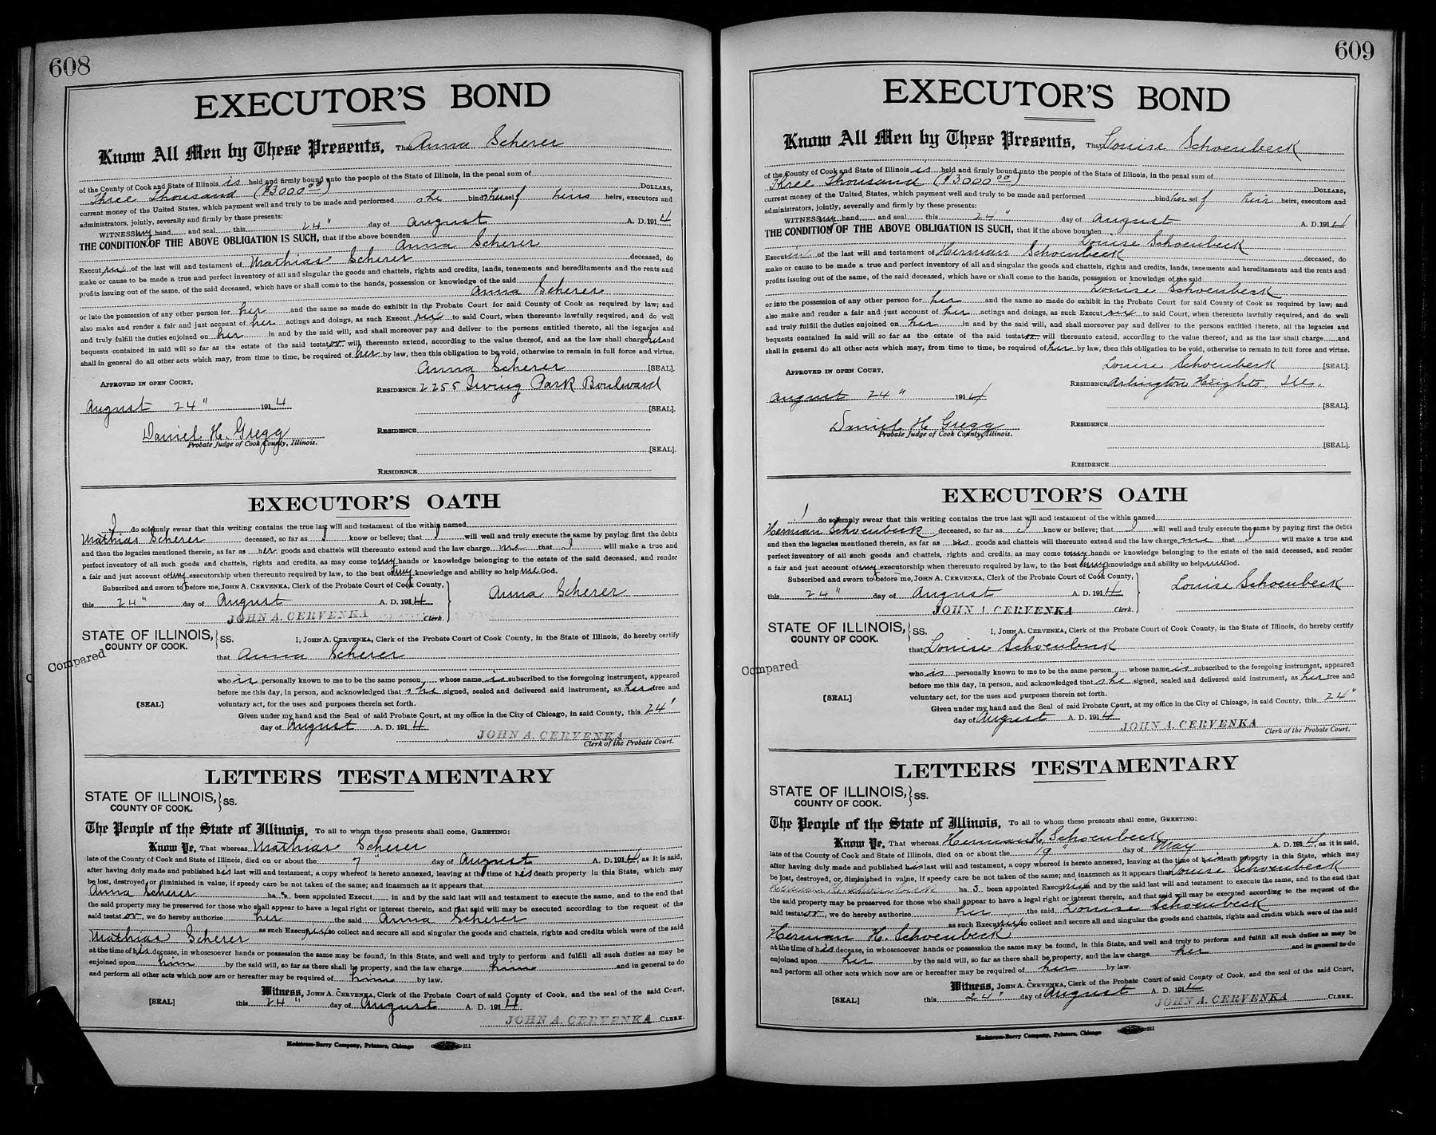 608
EXECUTOR'S BOND
Know All Men by These Presents, That Anna Scherer
of the County of Cook and State of Illinois, is held and firmly bound unto the people of the State of Illinois, in the penal sum of
Three Thousand ($3000.00) DOLLARS,
current money of the United States, which payment well and truly to be made and performed she bind herself heirs, executors and
administrators, jointly, severally and firmly by these presents:
WITNESS my hand and seal this 24" day of August A. D. 1914
THE CONDITION OF THE ABOVE OBLIGATION IS SUCH, that if the above bounden
Anna Scherer
Executrix of the last will and testament of Mathias Scherer deceased, do
make or cause to be made a true and perfect inventory of all and singular the goods and chattels, rights and credits, lands, tenements and hereditaments and the rents and
profits issuing out of the same, of the said deceased, which have or shall come to the hands, possession or knowledge of the said
Anna Scherer
or into the possession of any other person for her and the same so made do exhibit in the Probate Court for said County of Cook as required by law; and
also make and render a fair and just account of her actings and doings, as such Executrix to said Court, when thereunto lawfully required, and do well
and truly fulfill the duties enjoined on her in and by the said will, and shall moreover pay and deliver to the persons entitled thereto, all the legacies and
bequests contained in said will so far as the estate of the said testator will thereunto extend, according to the value thereof, and as the law shall charge her and
shall in general do all other acts which may, from time to time, be required of her by law, then this obligation to be void, otherwise to remain in full force and virtue.
Anna Scherer [SEAL]
APPROVED IN OPEN COURT,
RESIDENCE 2255 Irving Park Boulevard
August 24" 1914
[SEAL]
Daniel H. Gregg
Probate Judge of Cook County, Illinois.
RESIDENCE
[SEAL]
RESIDENCE
EXECUTOR'S OATH
I do solemnly swear that this writing contains the true last will and testament of the within named
Mathias Scherer deceased, so far as I know or believe; that I will well and truly execute the same by paying first the debts
and then the legacies mentioned therein, as far as her goods and chattels will thereunto extend and the law charge me that I will make a true and
perfect inventory of all such goods and chattels, rights and credits, as may come to my hands or knowledge belonging to the estate of the said deceased, and render
a fair and just account of my executorship when thereunto required by law, to the best of my knowledge and ability so help me God.
Subscribed and sworn to before me, JOHN A. CERVENKA, Clerk of the Probate Court of Cook County,
this 24" day of August A. D. 1914
Anna Scherer
JOHN A. CERVENKA Clerk
STATE OF ILLINOIS, COUNTY OF COOK. SS.
I, JOHN A. CERVENKA, Clerk of the Probate Court of Cook County, in the State of Illinois, do hereby certify
that Anna Scherer
Compared
who is personally known to me to be the same person whose name is subscribed to the foregoing instrument, appeared
before me this day, in person, and acknowledged that she signed, sealed and delivered said instrument, as her free and
[SEAL] voluntary act, for the uses and purposes therein set forth.
Given under my hand and the Seal of said Probate Court, at my office in the City of Chicago, in said County, this 24"
day of August A. D. 1914
JOHN A. CERVENKA
Clerk of the Probate Court.
LETTERS TESTAMENTARY
STATE OF ILLINOIS, COUNTY OF COOK. SS.
The People of the State of Illinois, To all to whom these presents shall come, GREETING:
Know Ye, That whereas Mathias Scherer
late of the County of Cook and State of Illinois, died on or about the 7" day of August A. D. 1914, as it is said,
after having duly made and published his last will and testament, a copy whereof is hereto annexed, leaving at the time of his death property in this State, which may
be lost, destroyed or diminished in value, if speedy care be not taken of the same; and inasmuch as it appears that
Anna Scherer has been appointed Execut in and by the said last will and testament to execute the same, and to the end that
the said property may be preserved for those who shall appear to have a legal right or interest therein, and that said will may be executed according to the request of the
said testator, we do hereby authorize her the said Anna Scherer
as such Executrix to collect and secure all and singular the goods and chattels, rights and credits which were of the said
Mathias Scherer
at the time of his decease, in whosesoever hands or possession the same may be found, in this State, and well and truly to perform and fulfill all such duties as may be
enjoined upon him by the said will, so far as there shall be property, and the law charge him and in general to do
and perform all other acts which now are or hereafter may be required of him by law.
Witness, JOHN A. CERVENKA, Clerk of the Probate Court of said County of Cook, and the seal of the said Court,
[SEAL] this 24" day of August A. D. 1914
JOHN A. CERVENKA CLERK.
Hedstrom-Barry Company, Printers, Chicago
609
EXECUTOR'S BOND
Know All Men by These Presents, That Louise Schoenbeck
of the County of Cook and State of Illinois, is held and firmly bound unto the people of the State of Illinois, in the penal sum of
Three Thousand ($3000.00) DOLLARS,
current money of the United States, which payment well and truly to be made and performed bind herself her heirs, executors and
administrators, jointly, severally and firmly by these presents:
WITNESS my hand and seal this 24" day of August A. D. 1914
THE CONDITION OF THE ABOVE OBLIGATION IS SUCH, that if the above bounden
Louise Schoenbeck
Executrix of the last will and testament of Herman Schoenbeck deceased, do
make or cause to be made a true and perfect inventory of all and singular the goods and chattels, rights and credits, lands, tenements and hereditaments and the rents and
profits issuing out of the same, of the said deceased, which have or shall come to the hands, possession or knowledge of the said
Louise Schoenbeck
or into the possession of any other person for her and the same so made do exhibit in the Probate Court for said County of Cook as required by law; and
also make and render a fair and just account of her actings and doings, as such Executrix to said Court, when thereunto lawfully required, and do well
and truly fulfill the duties enjoined on her in and by the said will, and shall moreover pay and deliver to the persons entitled thereto, all the legacies and
bequests contained in said will so far as the estate of the said testator will thereunto extend, according to the value thereof, and as the law shall charge and
shall in general do all other acts which may, from time to time, be required of her by law, then this obligation to be void, otherwise to remain in full force and virtue.
Louise Schoenbeck [SEAL]
APPROVED IN OPEN COURT,
RESIDENCE Arlington Heights, Ill.
August 24" 1914
[SEAL]
Daniel H. Gregg
Probate Judge of Cook County, Illinois.
RESIDENCE
[SEAL]
RESIDENCE
EXECUTOR'S OATH
I do solemnly swear that this writing contains the true last will and testament of the within named
Herman Schoenbeck deceased, so far as I know or believe; that I will well and truly execute the same by paying first the debts
and then the legacies mentioned therein, as far as his goods and chattels will thereunto extend and the law charge me that I will make a true and
perfect inventory of all such goods and chattels, rights and credits, as may come to my hands or knowledge belonging to the estate of the said deceased, and render
a fair and just account of my executorship when thereunto required by law, to the best of my knowledge and ability so help me God.
Subscribed and sworn to before me, JOHN A. CERVENKA, Clerk of the Probate Court of Cook County,
this 24" day of August A. D. 1914
Louise Schoenbeck
JOHN A. CERVENKA Clerk
STATE OF ILLINOIS, COUNTY OF COOK. SS.
I, JOHN A. CERVENKA, Clerk of the Probate Court of Cook County, in the State of Illinois, do hereby certify
that Louise Schoenbeck
Compared
who is personally known to me to be the same person whose name is subscribed to the foregoing instrument, appeared
before me this day, in person, and acknowledged that she signed, sealed and delivered said instrument, as her free and
[SEAL] voluntary act, for the uses and purposes therein set forth.
Given under my hand and the Seal of said Probate Court, at my office in the City of Chicago, in said County, this 24"
day of August A. D. 1914
JOHN A. CERVENKA
Clerk of the Probate Court.
LETTERS TESTAMENTARY
STATE OF ILLINOIS, COUNTY OF COOK. SS.
The People of the State of Illinois, To all to whom these presents shall come, GREETING:
Know Ye, That whereas Herman H. Schoenbeck
late of the County of Cook and State of Illinois, died on or about the 19" day of May A. D. 1914, as it is said,
after having duly made and published his last will and testament, a copy whereof is hereto annexed, leaving at the time of his death property in this State, which may
be lost, destroyed, or diminished in value, if speedy care be not taken of the same; and inasmuch as it appears that Louise Schoenbeck
has been appointed Executrix in and by the said last will and testament to execute the same, and to the end that
the said property may be preserved for those who shall appear to have a legal right or interest therein, and that said will may be executed according to the request of the
said testator, we do hereby authorize her the said Louise Schoenbeck
as such Executrix to collect and secure all and singular the goods and chattels, rights and credits which were of the said
Herman H. Schoenbeck
at the time of his decease, in whosesoever hands or possession the same may be found, in this State, and well and truly to perform and fulfill all such duties as may be
enjoined upon her by the said will, so far as there shall be property, and the law charge her and in general to do
and perform all other acts which now are or hereafter may be required of her by law.
Witness, JOHN A. CERVENKA, Clerk of the Probate Court of said County of Cook, and the seal of the said Court,
[SEAL] this 24" day of August A. D. 1914
JOHN A. CERVENKA CLERK.
Hedstrom-Barry Company, Printers, Chicago